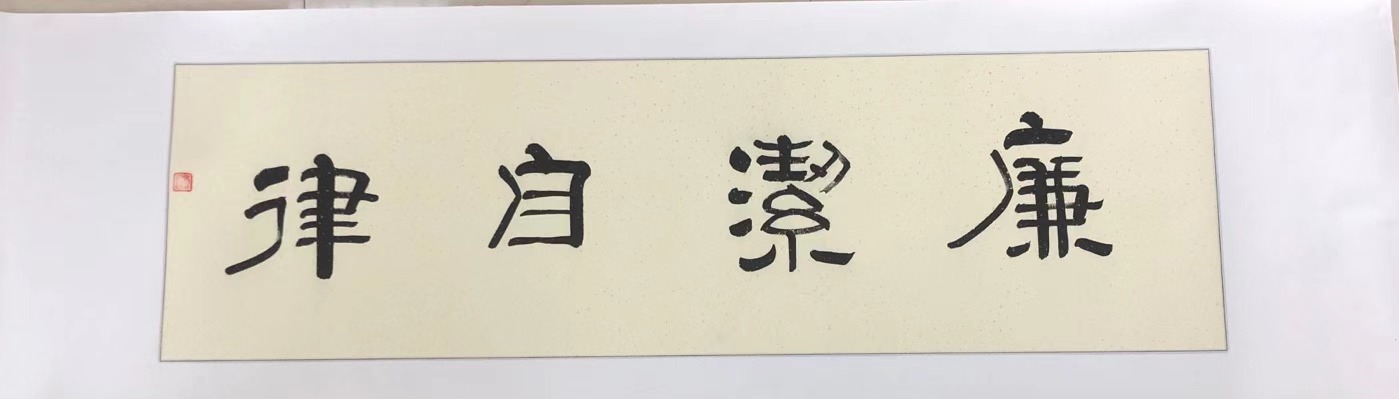 廉潔自律